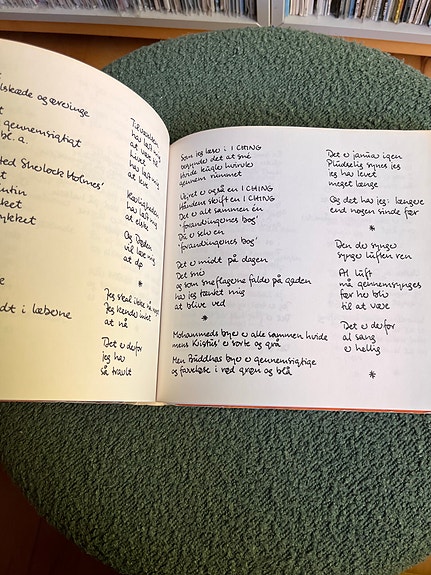 og
gennemsigtigt
bl. a.
Sherlock Holmes'
i læberne
Tilværelsen
har lært mig
at være til
Livet
har lært mig
at leve
Kærligheden
har lært mig
at elske
Og Døden
vil lære mig
at dø
*
Jeg skal ikke nå noget
Jeg kender intet
at nå
Det er derfor
jeg har
så travlt
Som jeg læser i I CHING
begynder det at sné
Hvide kugler hvirvler
gennem rummet
Vejret er også en I CHING
Håndens skrift en I CHING
Det er alt sammen én
'forandringernes bog'
Du er selv en
'forandringernes bog'
Det er midt på dagen
Det snér
og som sneflagene falder på gaden
har jeg tænkt mig
at blive ved
*
Mohammeds byer er alle sammen hvide
mens Kristus' er sorte og grå
Men Buddhas byer er gennemsigtige
og farveløse i rød grøn og blå
Det er januar igen
Pludselig synes jeg
jeg har levet
meget længe
Og det har jeg: længere
end nogen sinde før
*
Den der synger
synger luften ren
Al luft
må gennemsynges
før
til at være
Det er derfor
al sang
er hellig
*